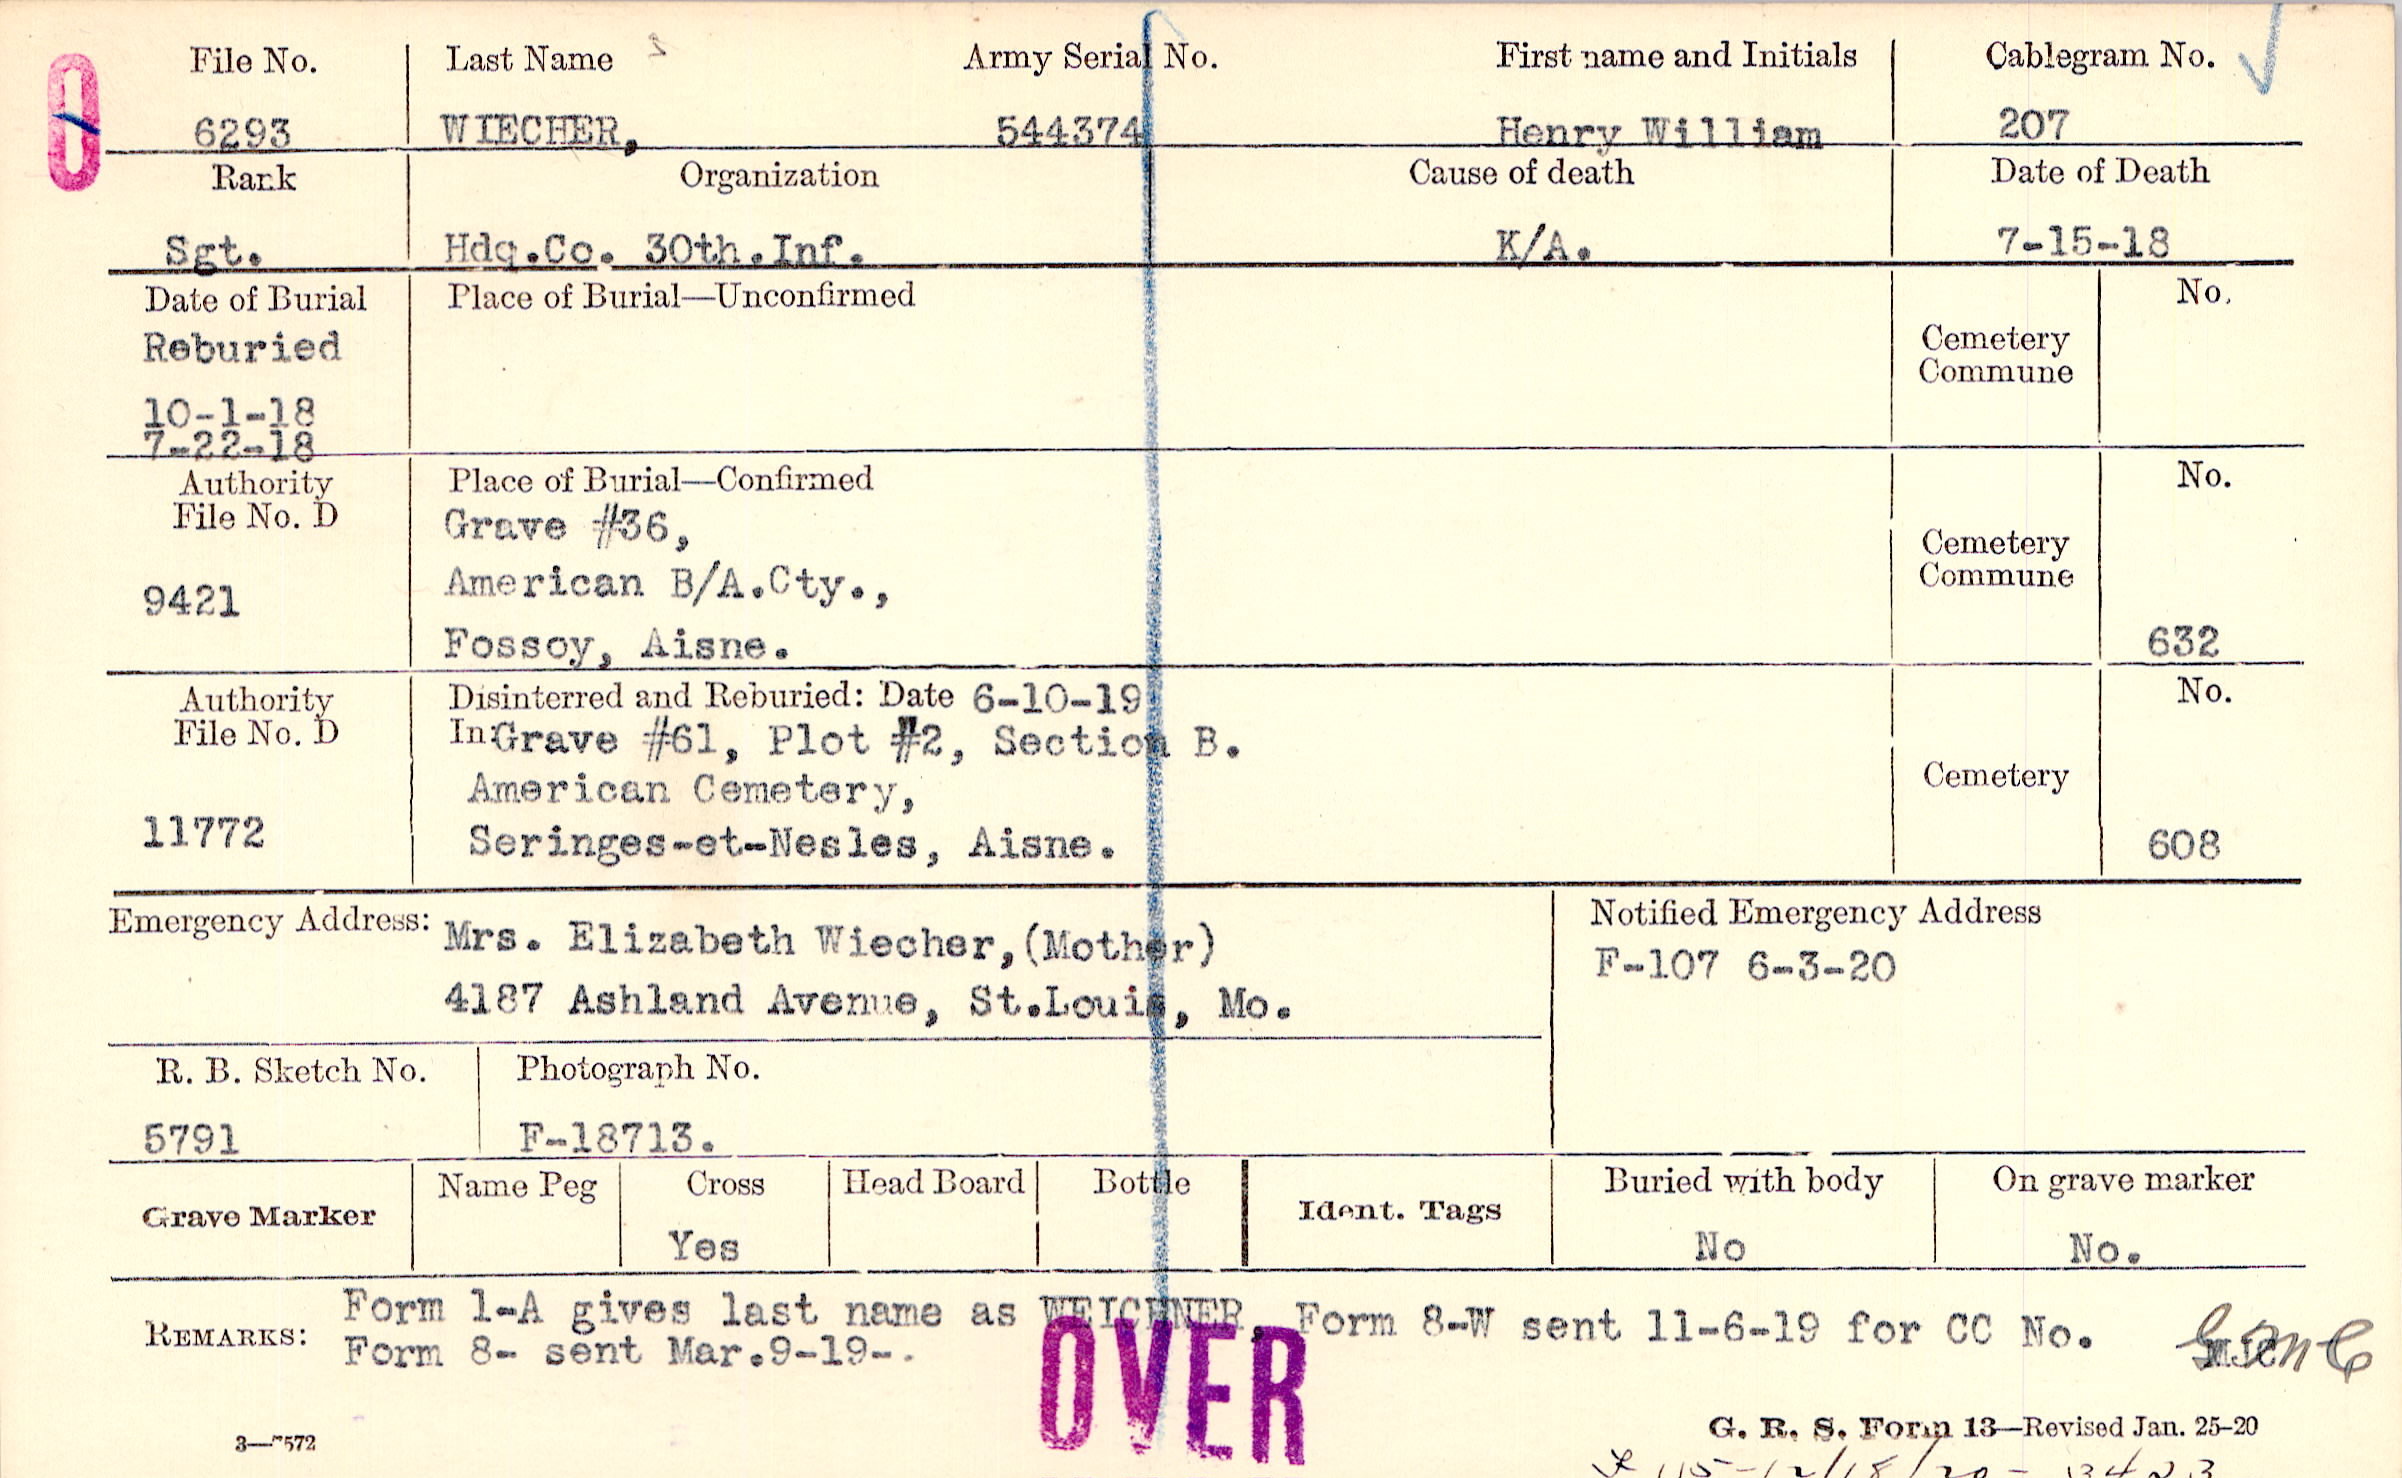 File No. Last Name Army Serial No. First name and Initials Cablegram No.
6293 WIECHER, 544374 Henry William 207
Rank Organization Cause of death Date of Death
Sgt. Hdq.Co. 30th.Inf. K/A. 7-15-18
Date of Burial Place of Burial—Unconfirmed No.
Reburied
Cemetery
Commune
10-1-18
7-22-18
Authority Place of Burial—Confirmed No.
File No. D Grave #36,
Cemetery
Commune
9421 American B/A.Cty.,
Fossoy, Aisne. 632
Authority Disinterred and Reburied: Date 6-10-19 No.
File No. D In: Grave #61, Plot #2, Section B.
American Cemetery, Cemetery
11772 Seringes-et-Nesles, Aisne. 608
Emergency Address: Mrs. Elizabeth Wiecher,(Mother)
4187 Ashland Avenue, St.Louis, Mo.
Notified Emergency Address
F-107 6-3-20
R. B. Sketch No. Photograph No.
5791 F-18713.
Grave Marker Name Peg Cross Head Board Bottle Ident. Tags Buried with body On grave marker
Yes No No.
REMARKS: Form 1-A gives last name as WEICHNER, Form 8-W sent 11-6-19 for CC No.
Form 8- sent Mar.9-19-.
OVER
G. R. S. Form 13—Revised Jan. 25-20